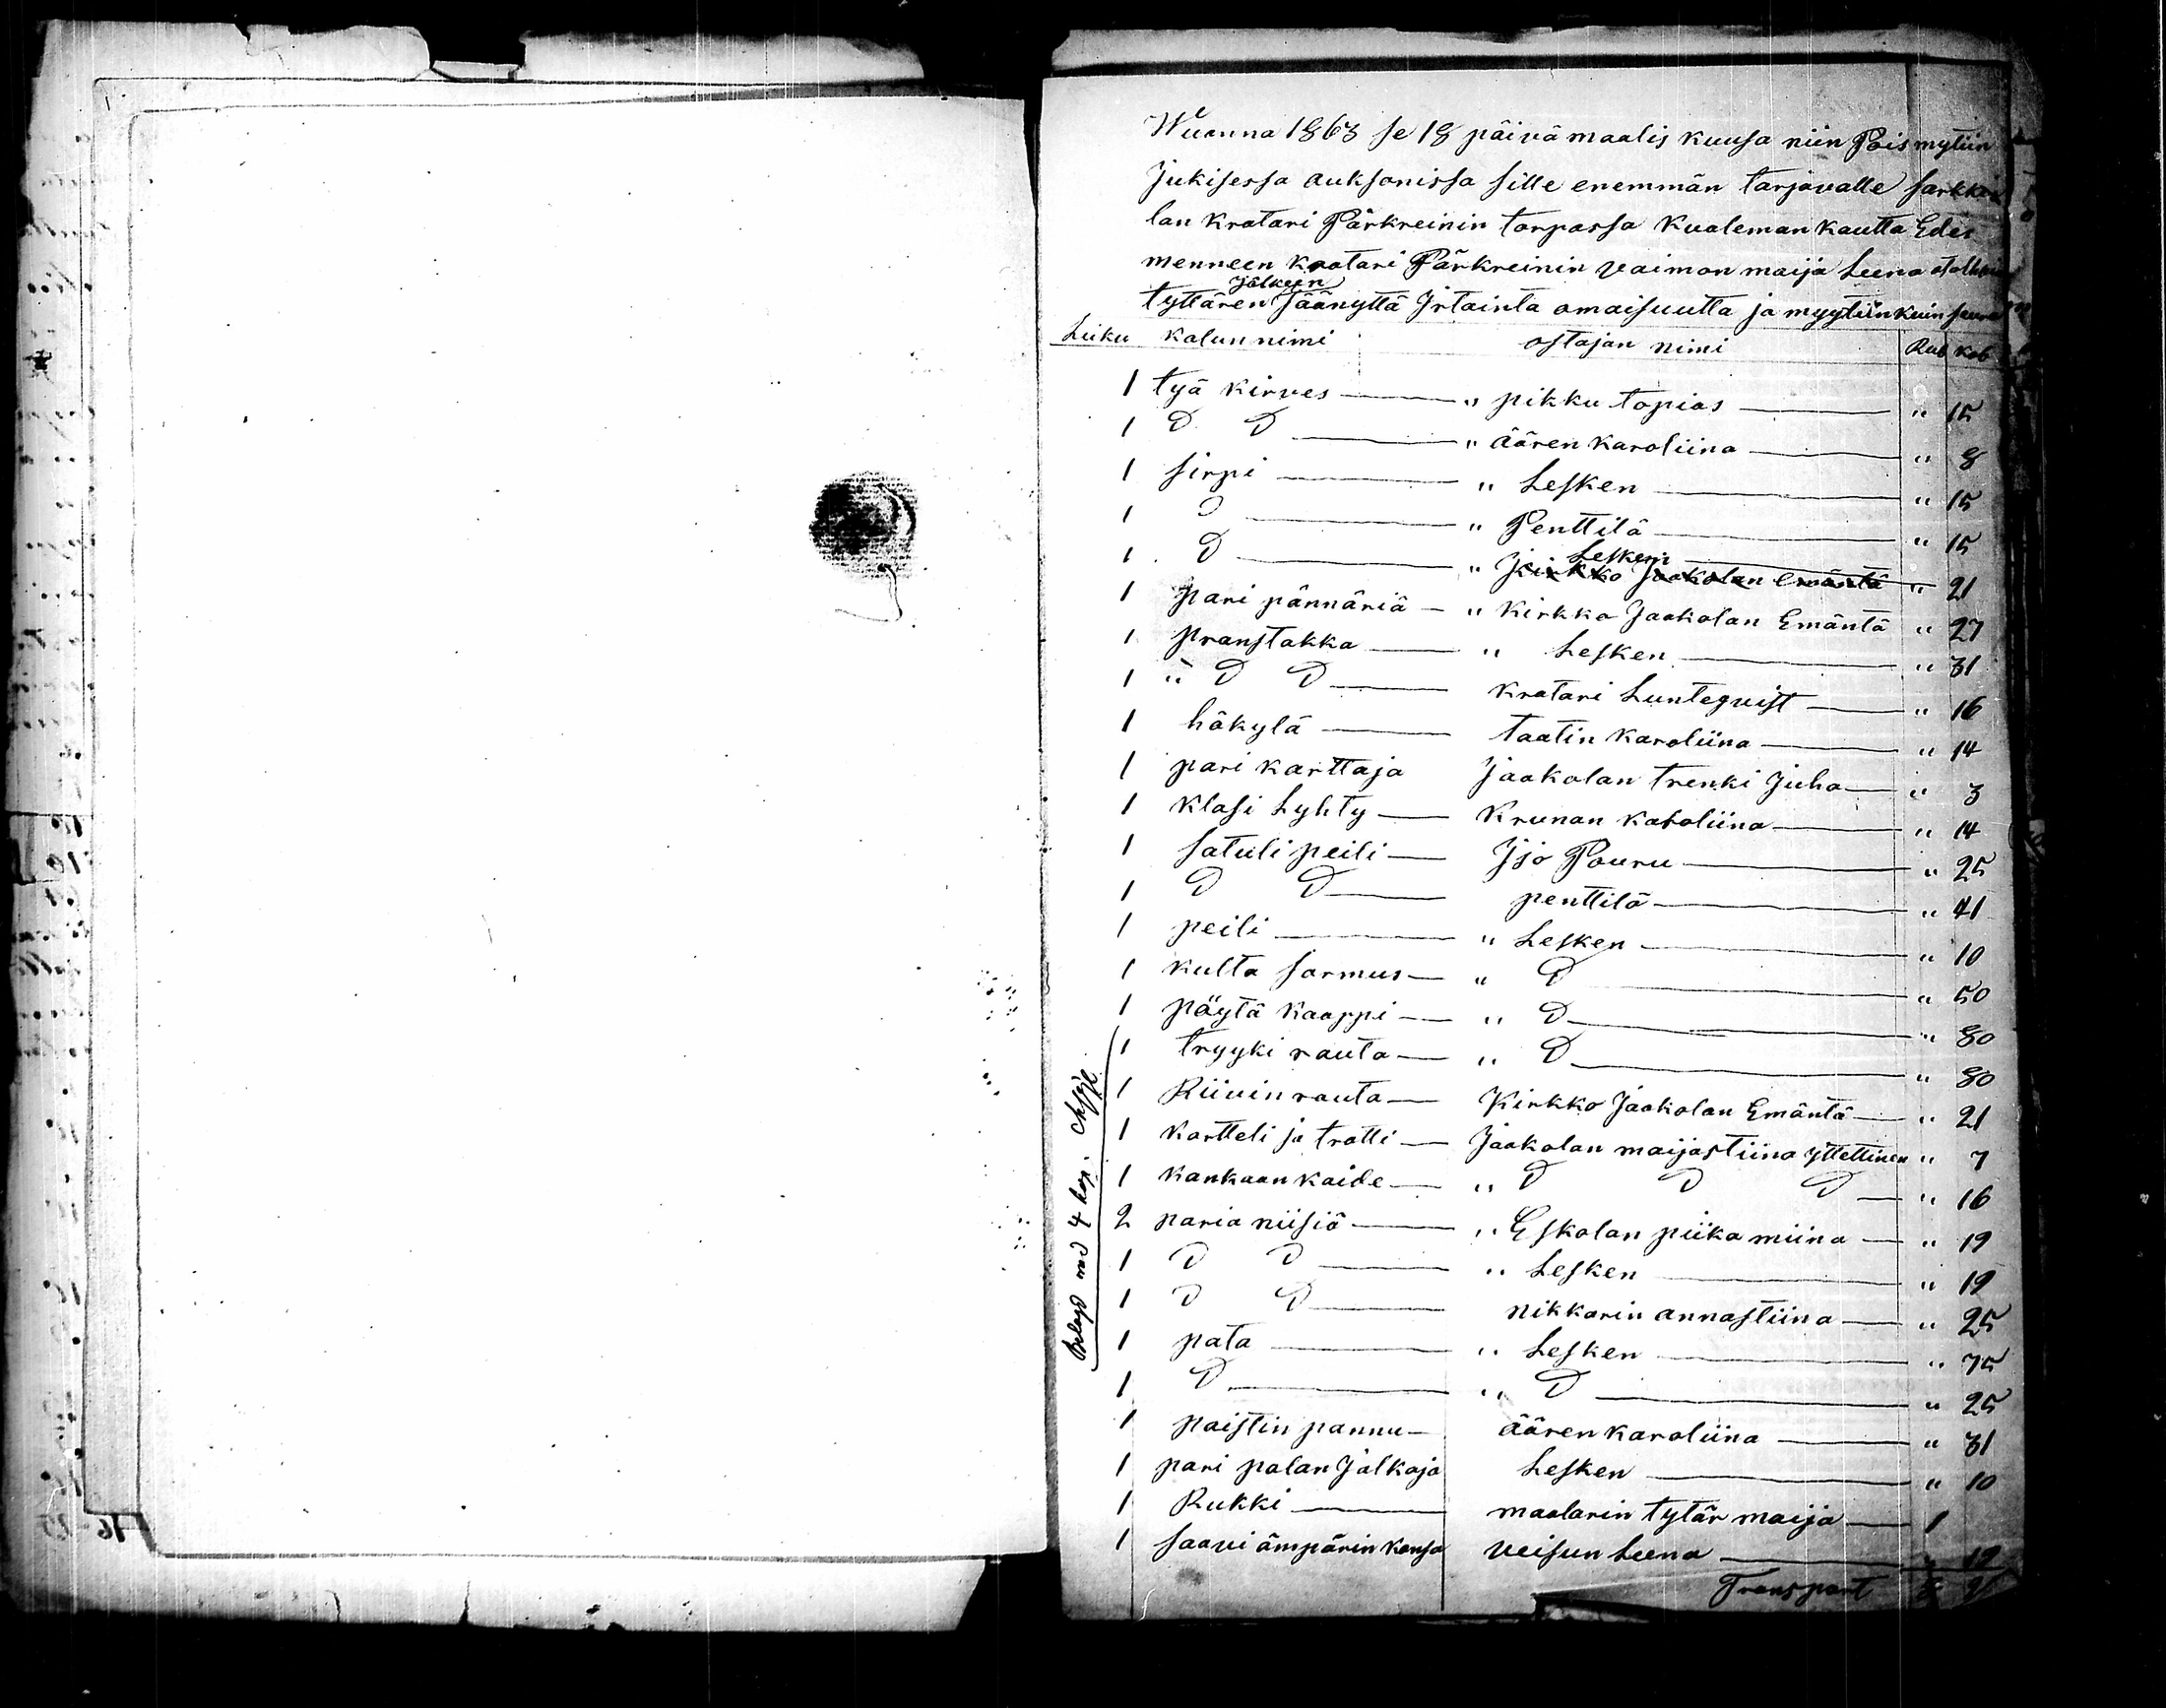 Wuonna 1863 se 18 päivä maalis kuusa niin Pois mytiin
Julkisessa auksonissa sille enemmän tarjovalle sarkki
lan kratari Pärkreinin torpassa kualeman kautta Edes
menneen kratari Pärkreinin vaimon maija Leena
Jälkeen
tyttären Jäänyttä Irtainta omaisuutta ja myytiin kuin
Luku kalun nimi ostajan nimi Rub kob
1 tyä kirves — " pikku topias — " 15
1 D D — " äären karoliina — " 8
1 sirpi — " Lesken — " 15
1 D — " Penttilä — " 15
Lesken
1 D — " Kirkko Jaakolan emäntä " 21
1 pari pännäriä — " Kirkko Jaakolan Emäntä " 27
1 pranstakka — " Lesken — " 31
1 " D D — kratari Luntequist — " 16
1 häkylä — taatin karoliina — " 14
1 pari karttaja Jaakolan trenki Juha — " 3
1 klasi Lyhty — Krunan karoliina — " 14
1 satuli peili — Iso Pouru — " 25
1 D D — penttilä — " 41
1 peili — " Lesken — " 10
1 kulta sormus — " D — " 50
1 pöytä kaappi — " D — " 80
1 tryyki rauta — " D — " 80
1 Riivin rauta — Kirkko Jaakolan Emäntä — " 21
1 kortteli ja tratti — Jaakolan maijastiina yttettinen " 7
1 kankaan kaide — " D D D — " 16
2 paria niisiä — " Eskolan piika miina — " 19
1 D D — " Lesken — " 19
1 D D — nikkarin annastiina — " 25
1 pata — " Lesken — " 75
1 D — " D — " 25
1 paistin pannu — äären karoliina — " 31
1 pari palan Jalkoja Lesken — " 10
1 Rukki — maalarin tytär maija — 1
1 saavi ämpärin kansa veisun Leena — " 12
Transport
Belagd med 4 kop.